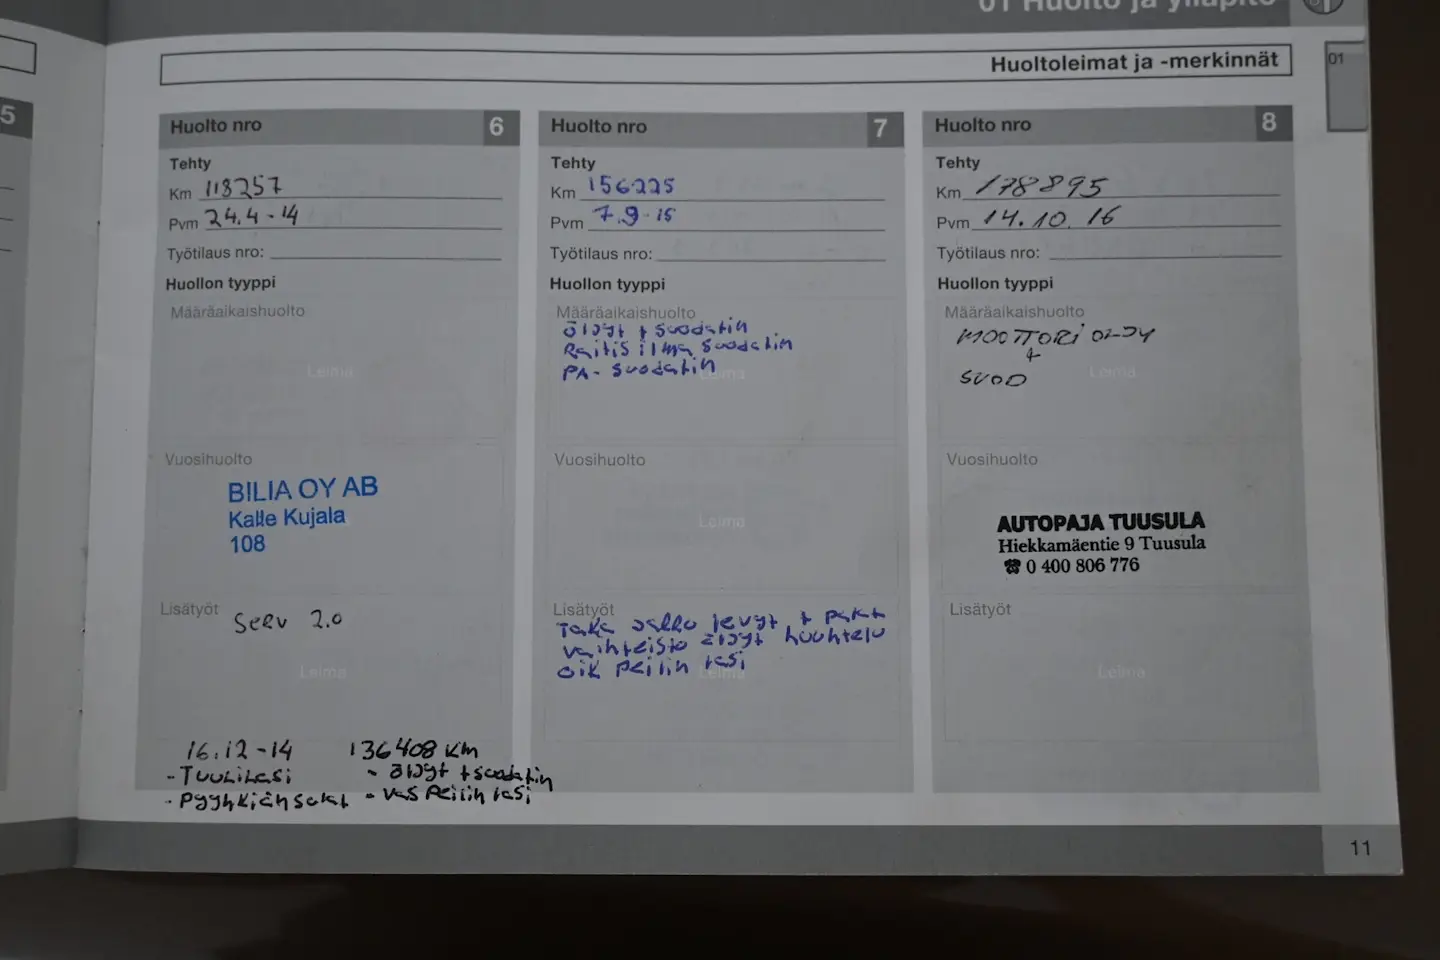 01 Huolto ja ylläpito
Huoltoleimat ja -merkinnät
01
5
Huolto nro 6
Tehty
Km 118257
Pvm 24.4-14
Työtilaus nro:
Huollon tyyppi
Määräaikaishuolto
Leima
Vuosihuolto
BILIA OY AB
Kalle Kujala
108
Lisätyöt
Serv 2.0
Leima
16.12-14 136408 KM
- Tuulilasi - öljyt + suodatin
- pyyhkiänsulat - vas peilin lasi
Huolto nro 7
Tehty
Km 156225
Pvm 7.9-15
Työtilaus nro:
Huollon tyyppi
Määräaikaishuolto
öljyt + suodatin
Raitis ilma suodatin
PA- suodatin
Leima
Vuosihuolto
Leima
Lisätyöt
Taka jarru levyt + palat
vaihteisto öljyt huuhtelu
oik peilin lasi
Leima
Huolto nro 8
Tehty
Km 178895
Pvm 14.10.16
Työtilaus nro:
Huollon tyyppi
Määräaikaishuolto
MOOTTORI ÖLJY
+
SUOD
Leima
Vuosihuolto
AUTOPAJA TUUSULA
Hiekkamäentie 9 Tuusula
☎ 0 400 806 776
Lisätyöt
Leima
11